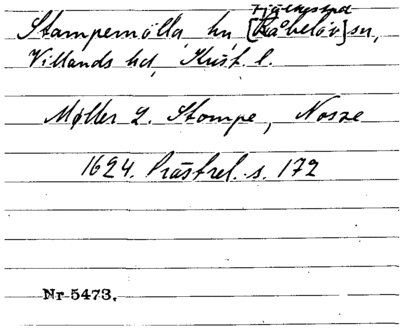 Fjälkestad
Stampemölla, hn [Råbelöv] sn,
Villands hd, Krist. l.
Møller L. Stompe, Nosze
1624. Prästrel. s. 172
Nr 5473.